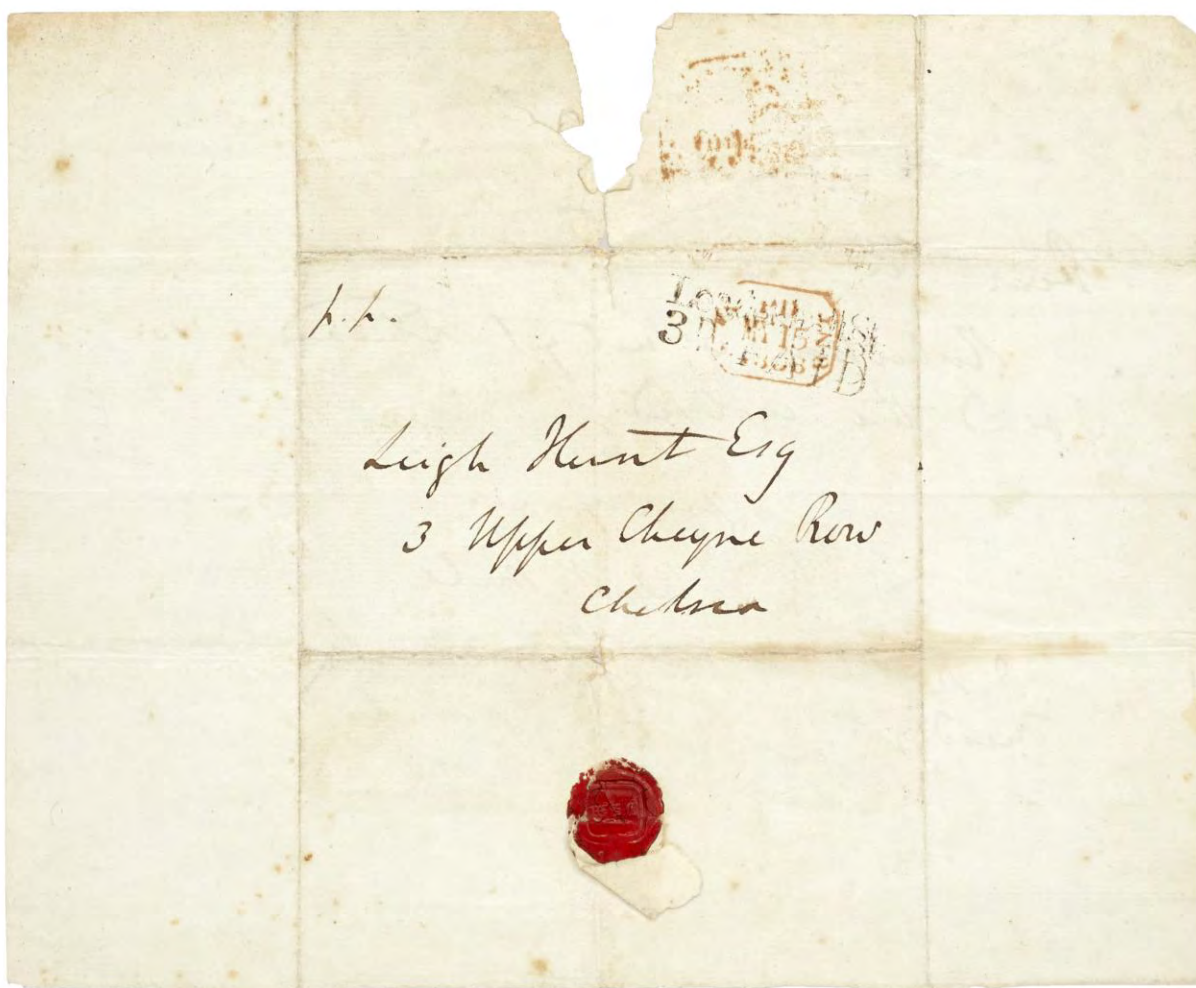 p.p.
3
1838
Leigh Hunt Esq
3 Upper Cheyne Row
Chelsea